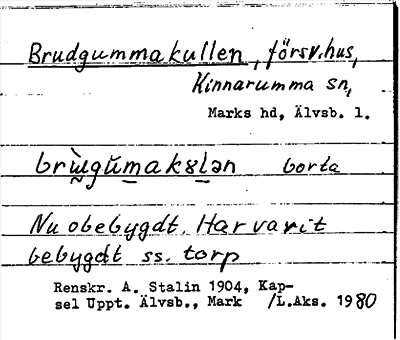 Brudgummakullen, försv.hus,
Kinnarumma sn,
Marks hd, Älvsb. l.
borta
Nu obebygdt. Har varit
bebygdt ss. torp
Renskr. A. Stalin 1904, Kap-
sel Uppt. Älvsb., Mark /L.Aks. 1980